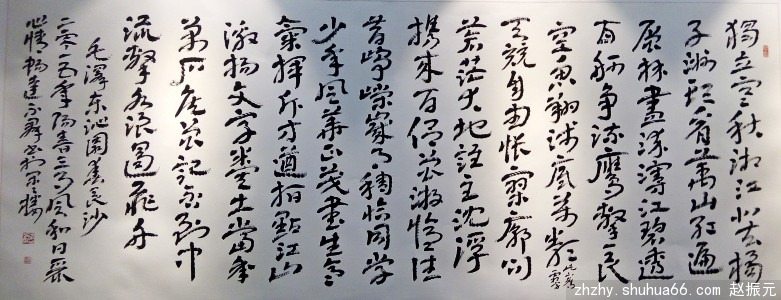 獨立寒秋湘江北去橘
子洲頭看萬山紅遍
層林盡染漫江碧透
百舸爭流鷹擊長
空魚翔淺底萬類
天競自由悵寥廓問
蒼茫大地誰主沈浮
携來百侣曾游憶往
昔崢嶸歲月稠恰同學
少年風華正茂書生意
氣揮斥方遒指點江山
激揚文字糞土當年
萬户侯曾記否到中
流擊水浪遏飛舟
毛澤東沁園春長沙
年陽春三月風和日
心情暢達
zhzhy.shuhua66.com 赵振元